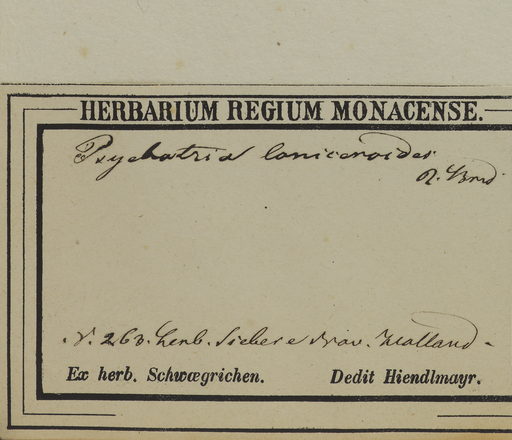 HERBARIUM REGIUM MONACENSE.
Psychotria loniceroides
R. Br
N. 263. herb. Sieber e Nov. Holland.
Ex herb. Schwægrichen. Dedit Hiendlmayr.